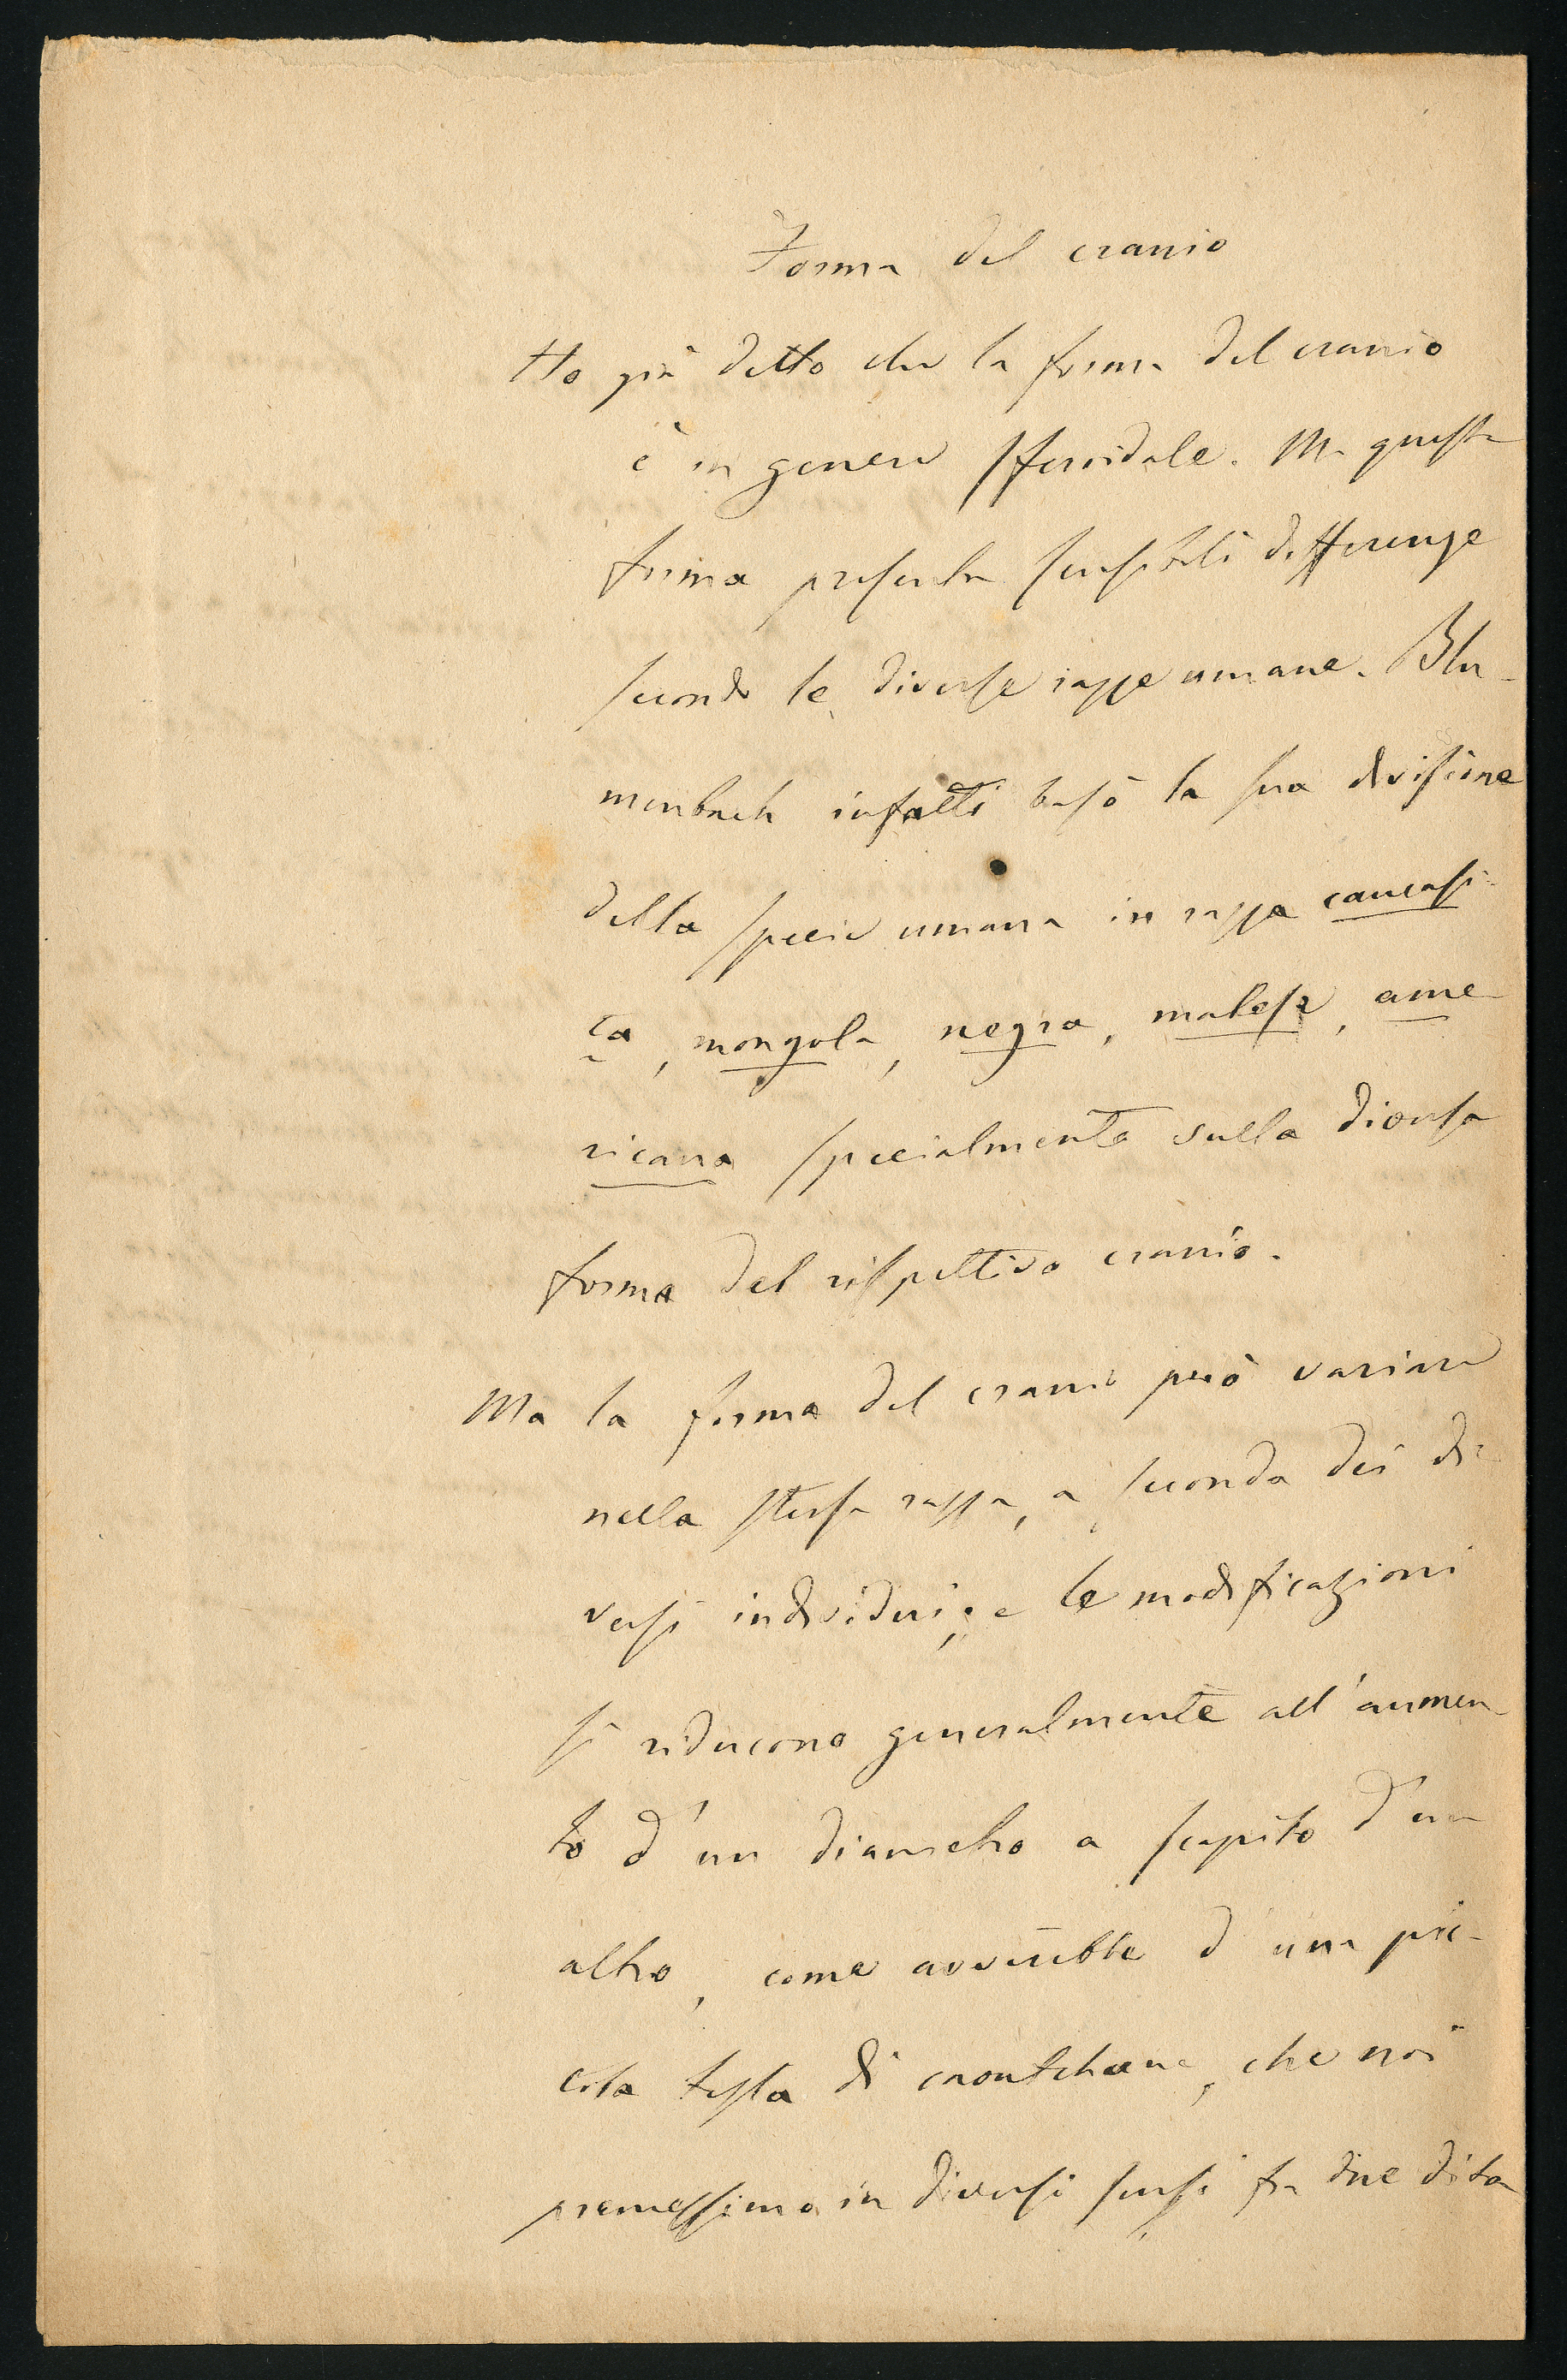 Forma del cranio
Ho già detto che la forma del cranio
è in genere sferoidale. Ma questa
forma presenta sensibili differenze
secondo le diverse razze umane. Blu-
menbach infatti basò la sua divisione
della specie umana in razza caucasi-
ca, mongola, negra, malese, ame-
ricana specialmente sulla diversa
forma del rispettivo cranio.
Ma la forma del cranio può variare
nella stessa razza, a seconda dei di-
versi individui; e le modificazioni
si riducono generalmente all'aumen-
to d'un diametro a scapito d'un
altro, come avverrebbe d'una pic-
cola testa di caoutchouc, che noi
premessimo in diversi sensi fra due dita